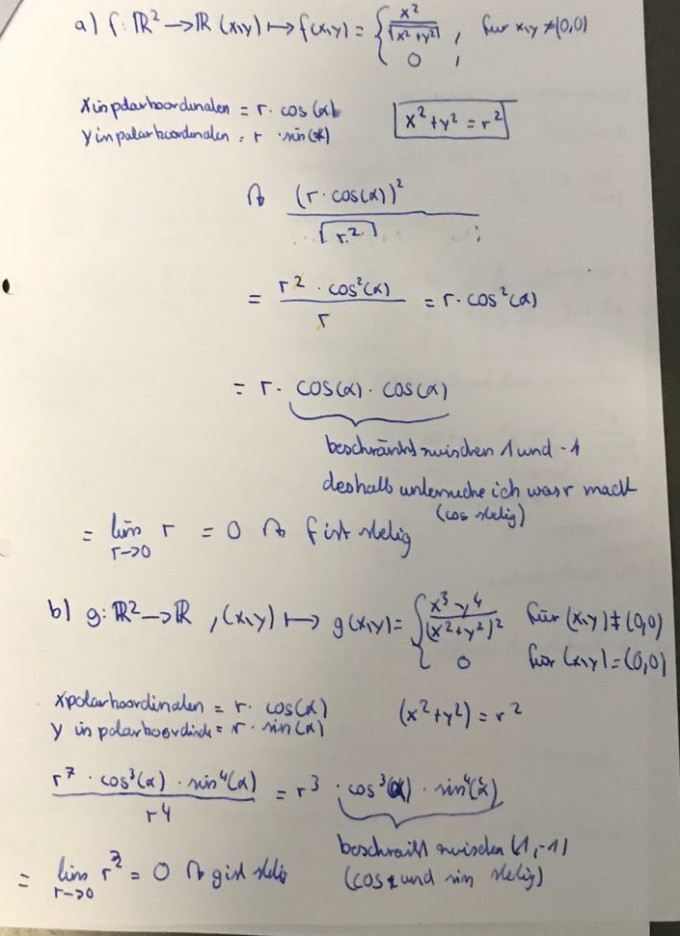 a) f: ℝ² → ℝ (x,y) ↦ f(x,y) = { x²/√(x²+y²) , für x,y ≠ (0,0)
0 ,
x in polarkoordinaten = r · cos(α)
y in polarkoordinaten = r · sin(α)
x² + y² = r²
(r · cos(α))² / √(r²)
= r² · cos²(α) / r = r · cos²(α)
= r · cos(α) · cos(α)
beschränkt zwischen 1 und -1
deshalb untersuche ich was r macht
(cos stetig)
= lim r→0 r = 0 f ist stetig
b) g: ℝ² → ℝ , (x,y) ↦ g(x,y) = { x³ y⁴/(x²+y²)² für (x,y) ≠ (0,0)
0 für (x,y) = (0,0)
x polarkoordinaten = r · cos(α)
y in polarkoordinate = r · sin(α)
(x² + y²) = r²
r⁷ · cos³(α) · sin⁴(α) / r⁴ = r³ · cos³(α) · sin⁴(α)
beschränkt zwischen (1,-1)
(cos und sin stetig)
= lim r→0 r³ = 0 g ist stetig